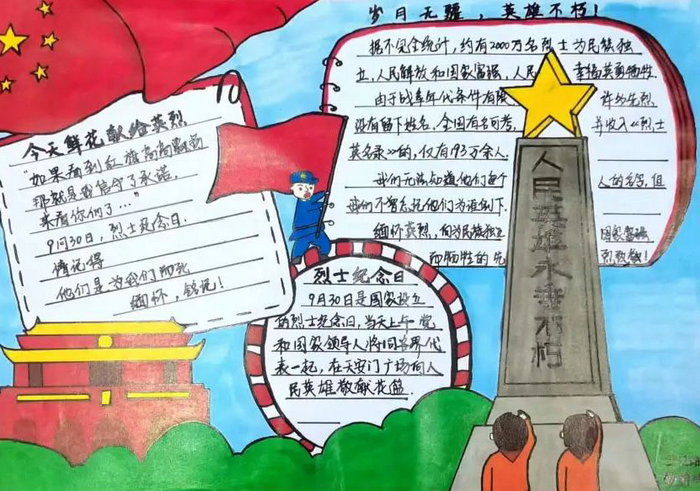 岁月无疆，英雄不朽！
今天鲜花献给英烈
"如果看到红旗高高飘动
那就是我信守了承诺，
来看你们了…"
9月30日，烈士纪念日．
请记得
他们是为我们而死
缅怀，铭记！
据不完全统计，约有2000万名烈士为民族独
立，人民解放和国家富强，人民 幸福英勇牺牲
由于战争年代条件有限 许多先烈
没有留下姓名，全国有名可考， 并收入《烈士
英名录》的，仅有193万余人．
我们无法知道他们每个 人的名字，但
我们不曾忘记他们为谁倒下．
缅怀英烈，向为民族独立 国家富强
而牺牲的先 烈致敬！
烈士纪念日
9月30日是国家设立
的烈士纪念日，当天上午，党
和国家领导人将同各界代
表一起，在天安门广场向人
民英雄敬献花篮．
人民英雄永垂不朽